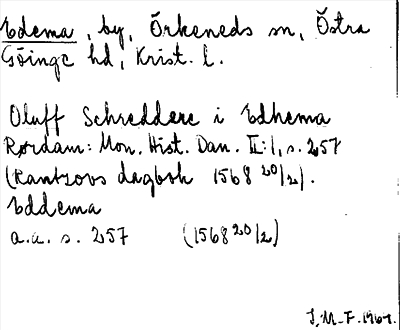 Edema, by, Örkeneds sn, Östra
Göinge hd, Krist. l.
Oluff Schreddere i Edhema
Rørdam: Mon. Hist. Dan. II:1, s. 257
(Rantzovs dagbok 1568 20/2).
Eddema
a.a. s. 257 (1568 20/2)
J.M-F. 1967.